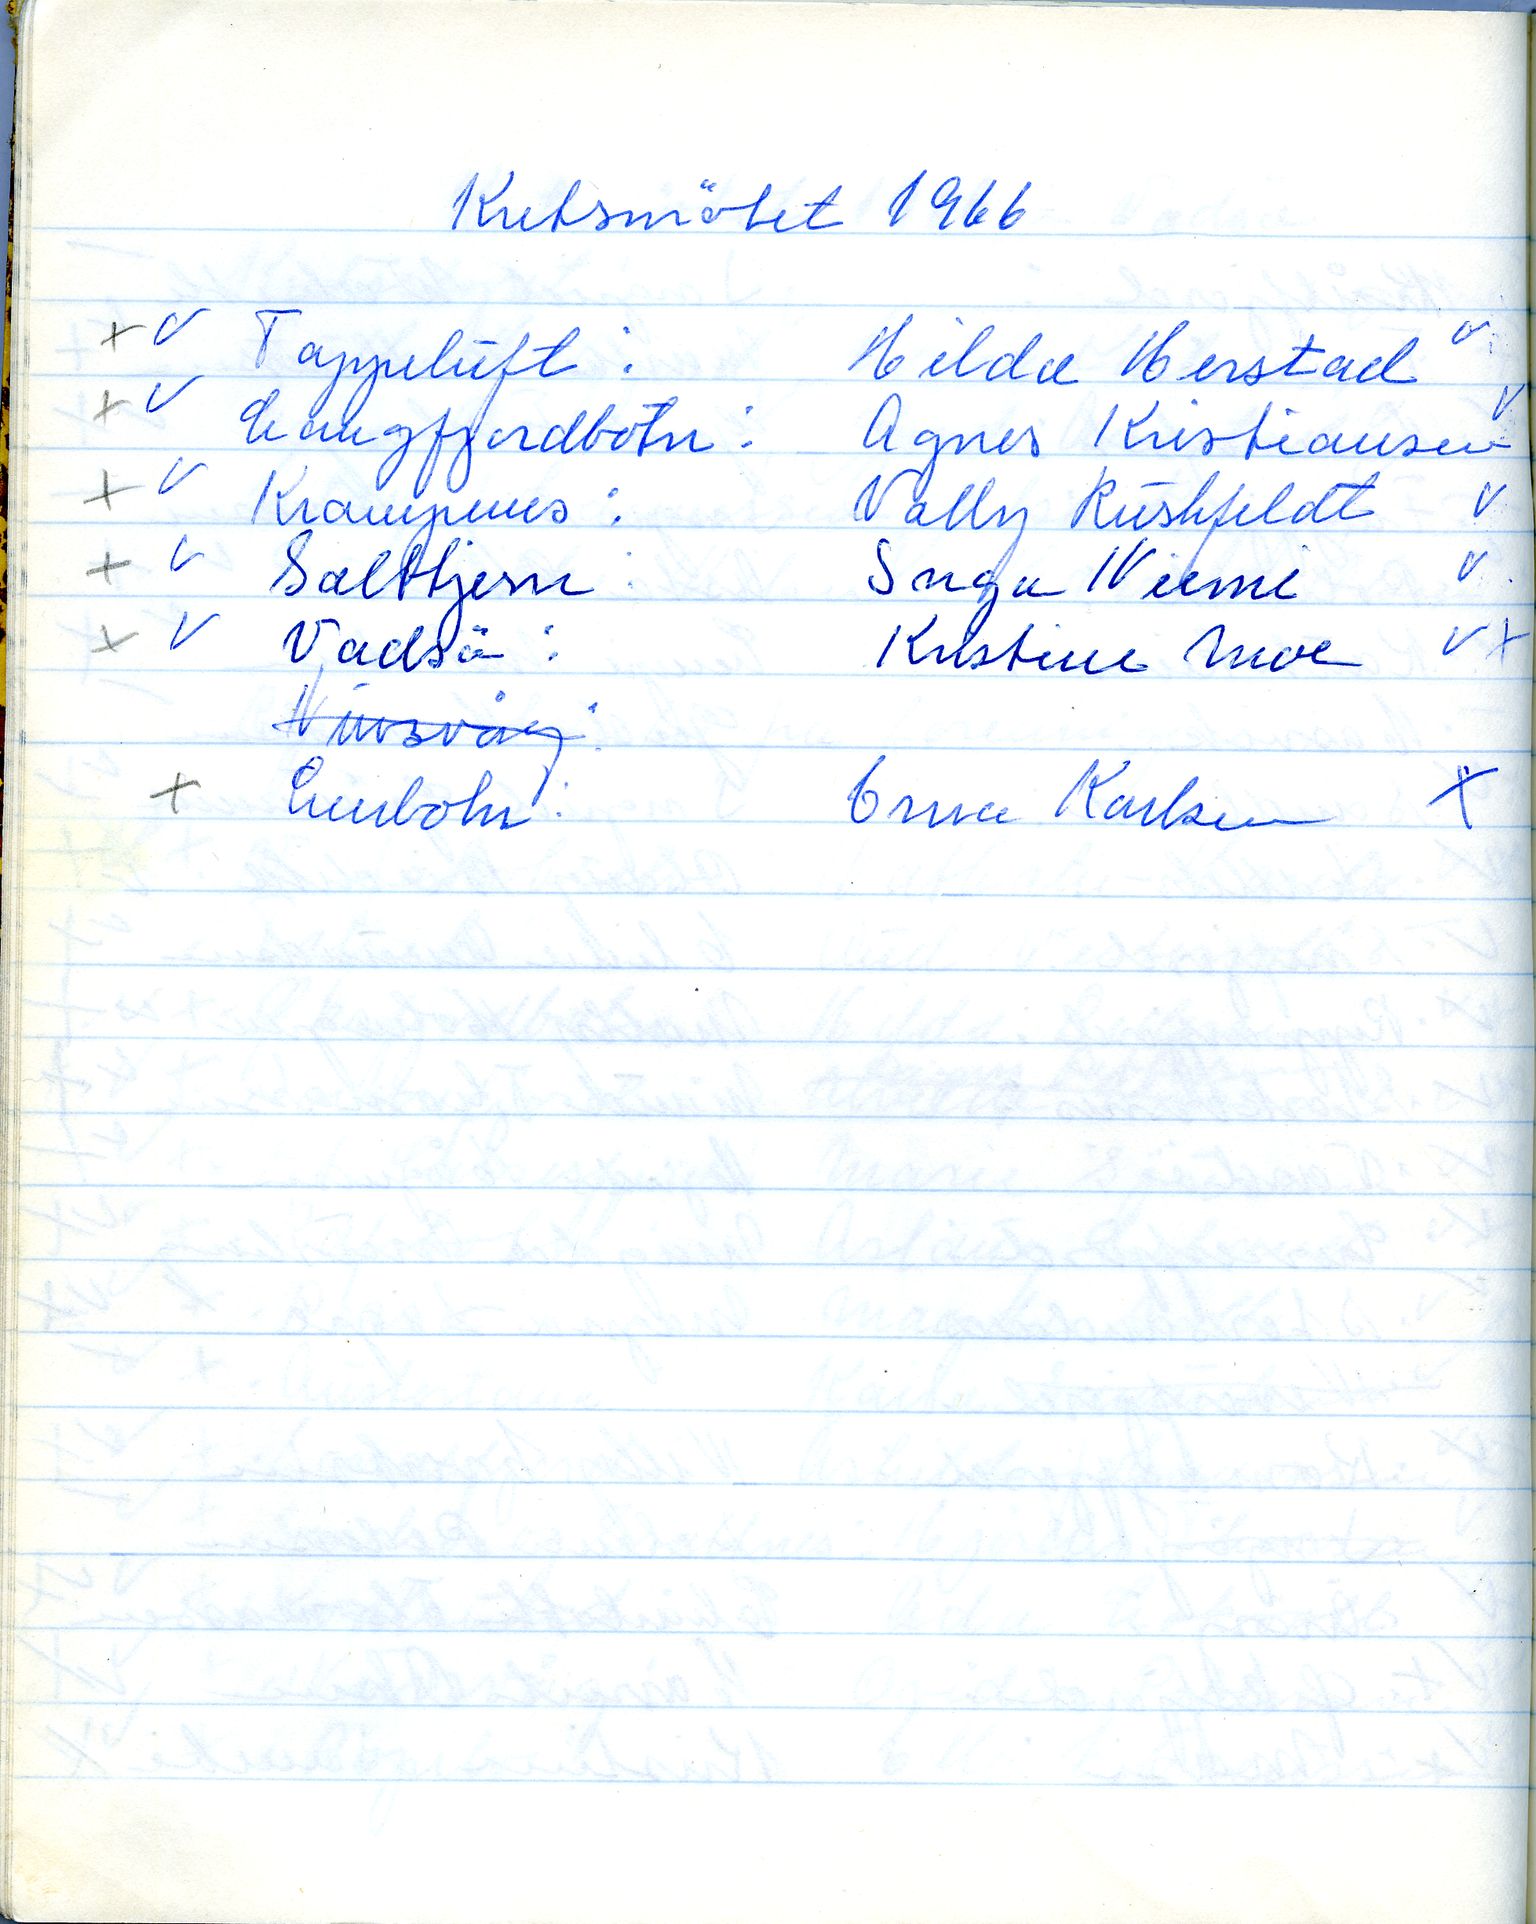 Kretsmötet 1966
+ v Tappeluft : Hilda Herstad v
+ v Langfjordbotn : Agnes Kristiansen v
+ v Krampenes : Vally Rushfeldt v
+ v Saltkjern : Inga Niemi v
+ v Vadsö : Kristine Moe v x
Nuvsvåg :
+ Leirbotn : Erna Karlsen x